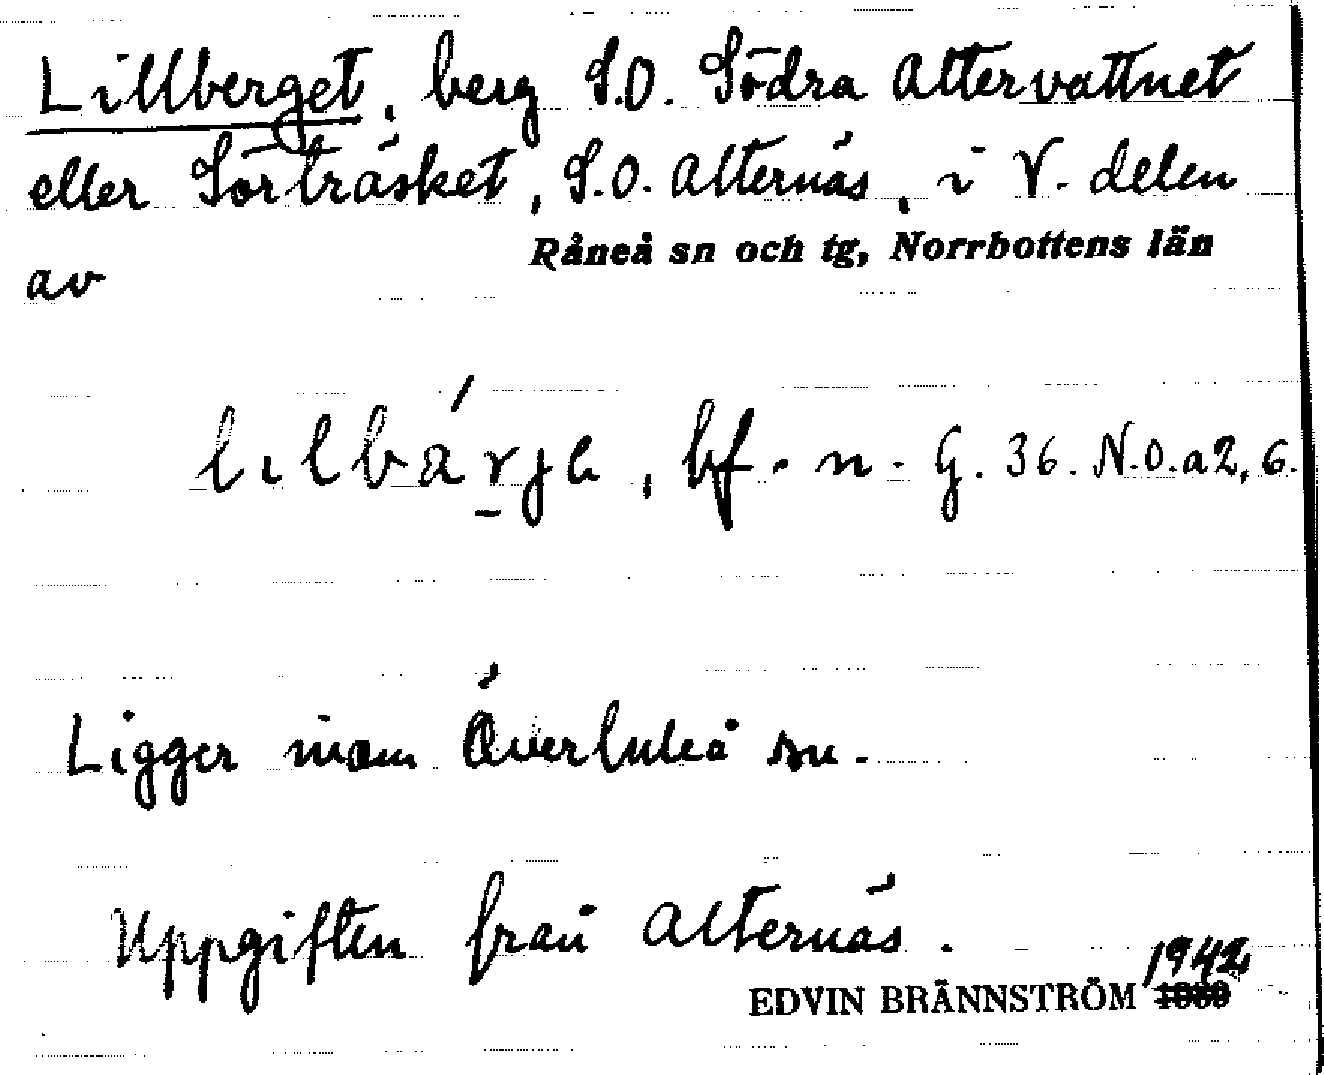 Lillberget, berg S.O. Södra Altervattnet
eller Sörträsket, S.O. Alternäs, i V. delen
av Råneå sn och tg, Norrbottens län
lılbárjɛ, bf. n. G. 36. N.O.a2,6.
Ligger inom Överluleå sn.
Uppgiften från Alternäs.
EDVIN BRÄNNSTRÖM 1942